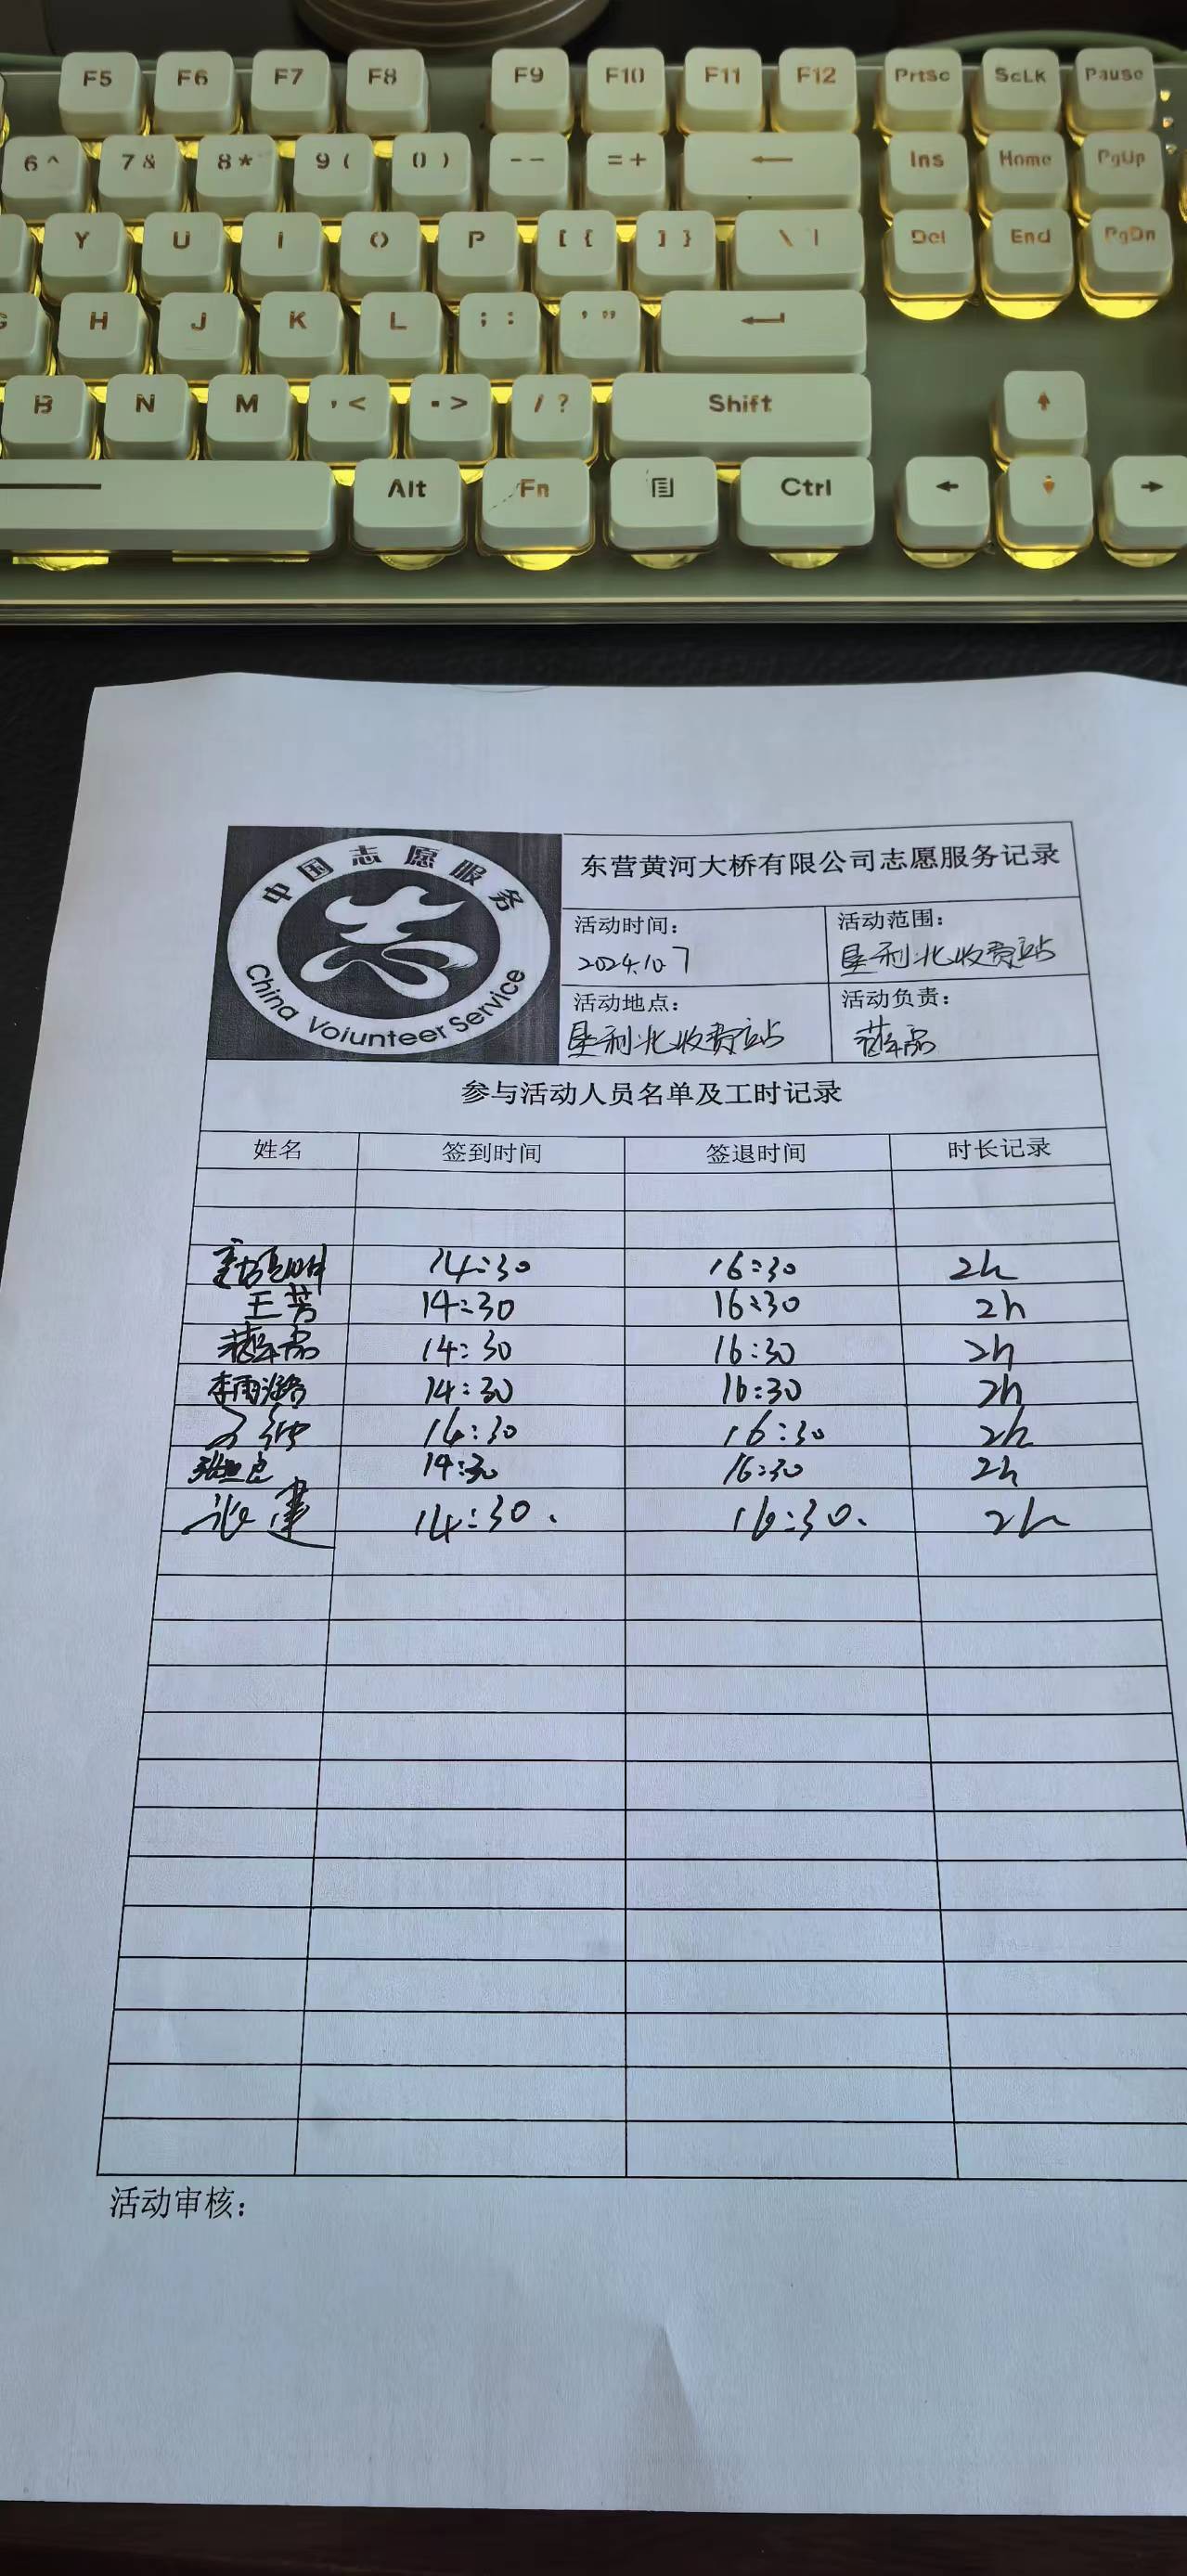 F5 F6 F7 F8 F9 F10 F11 F12 PrtSc ScLK Pause
6 ^ 7 & 8 * 9 ( 0 ) - - = + ← Ins Home PgUp
Y U I O P [ { ] } \ | Del End PgDn
G H J K L ; : ' " ↵
B N M , < . > / ? Shift ↑
Alt Fn Ctrl ← ↓ →
中国志愿服务
China Volunteer Service
东营黄河大桥有限公司志愿服务记录
活动时间: 活动范围:
2024.10.7 垦利北收费站
活动地点: 活动负责:
垦利北收费站
参与活动人员名单及工时记录
姓名 签到时间 签退时间 时长记录
14:30 16:30 2h
王芳 14:30 16:30 2h
14:30 16:30 2h
14:30 16:30 2h
14:30 16:30 2h
14:30 16:30 2h
张建 14:30. 16:30. 2h
活动审核: